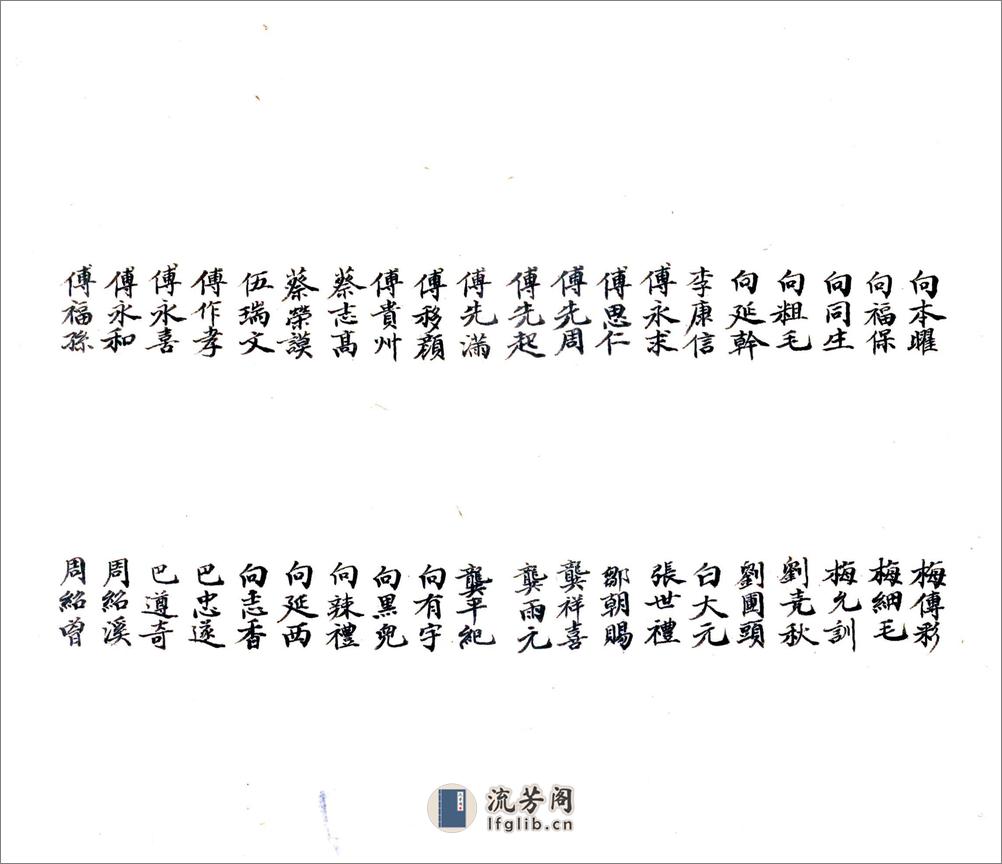 向本曜
向福保
向同生
向粗毛
向延幹
李康信
傅永求
傅思仁
傅先周
傅先起
傅先滿
傅移顏
傅貴州
蔡志髙
蔡榮謨
伍瑞文
傅作孝
傅永喜
傅永和
傅福孫
梅傳彩
梅細毛
梅允訓
劉克秋
劉圑頭
白大元
張世禮
鄒朝賜
龔祥喜
龔雨元
龔平紀
向有宇
向黑兜
向辣禮
向延西
向志香
巴忠遂
巴遵奇
周紹溪
周紹曽
流芳阁
lfglib.cn